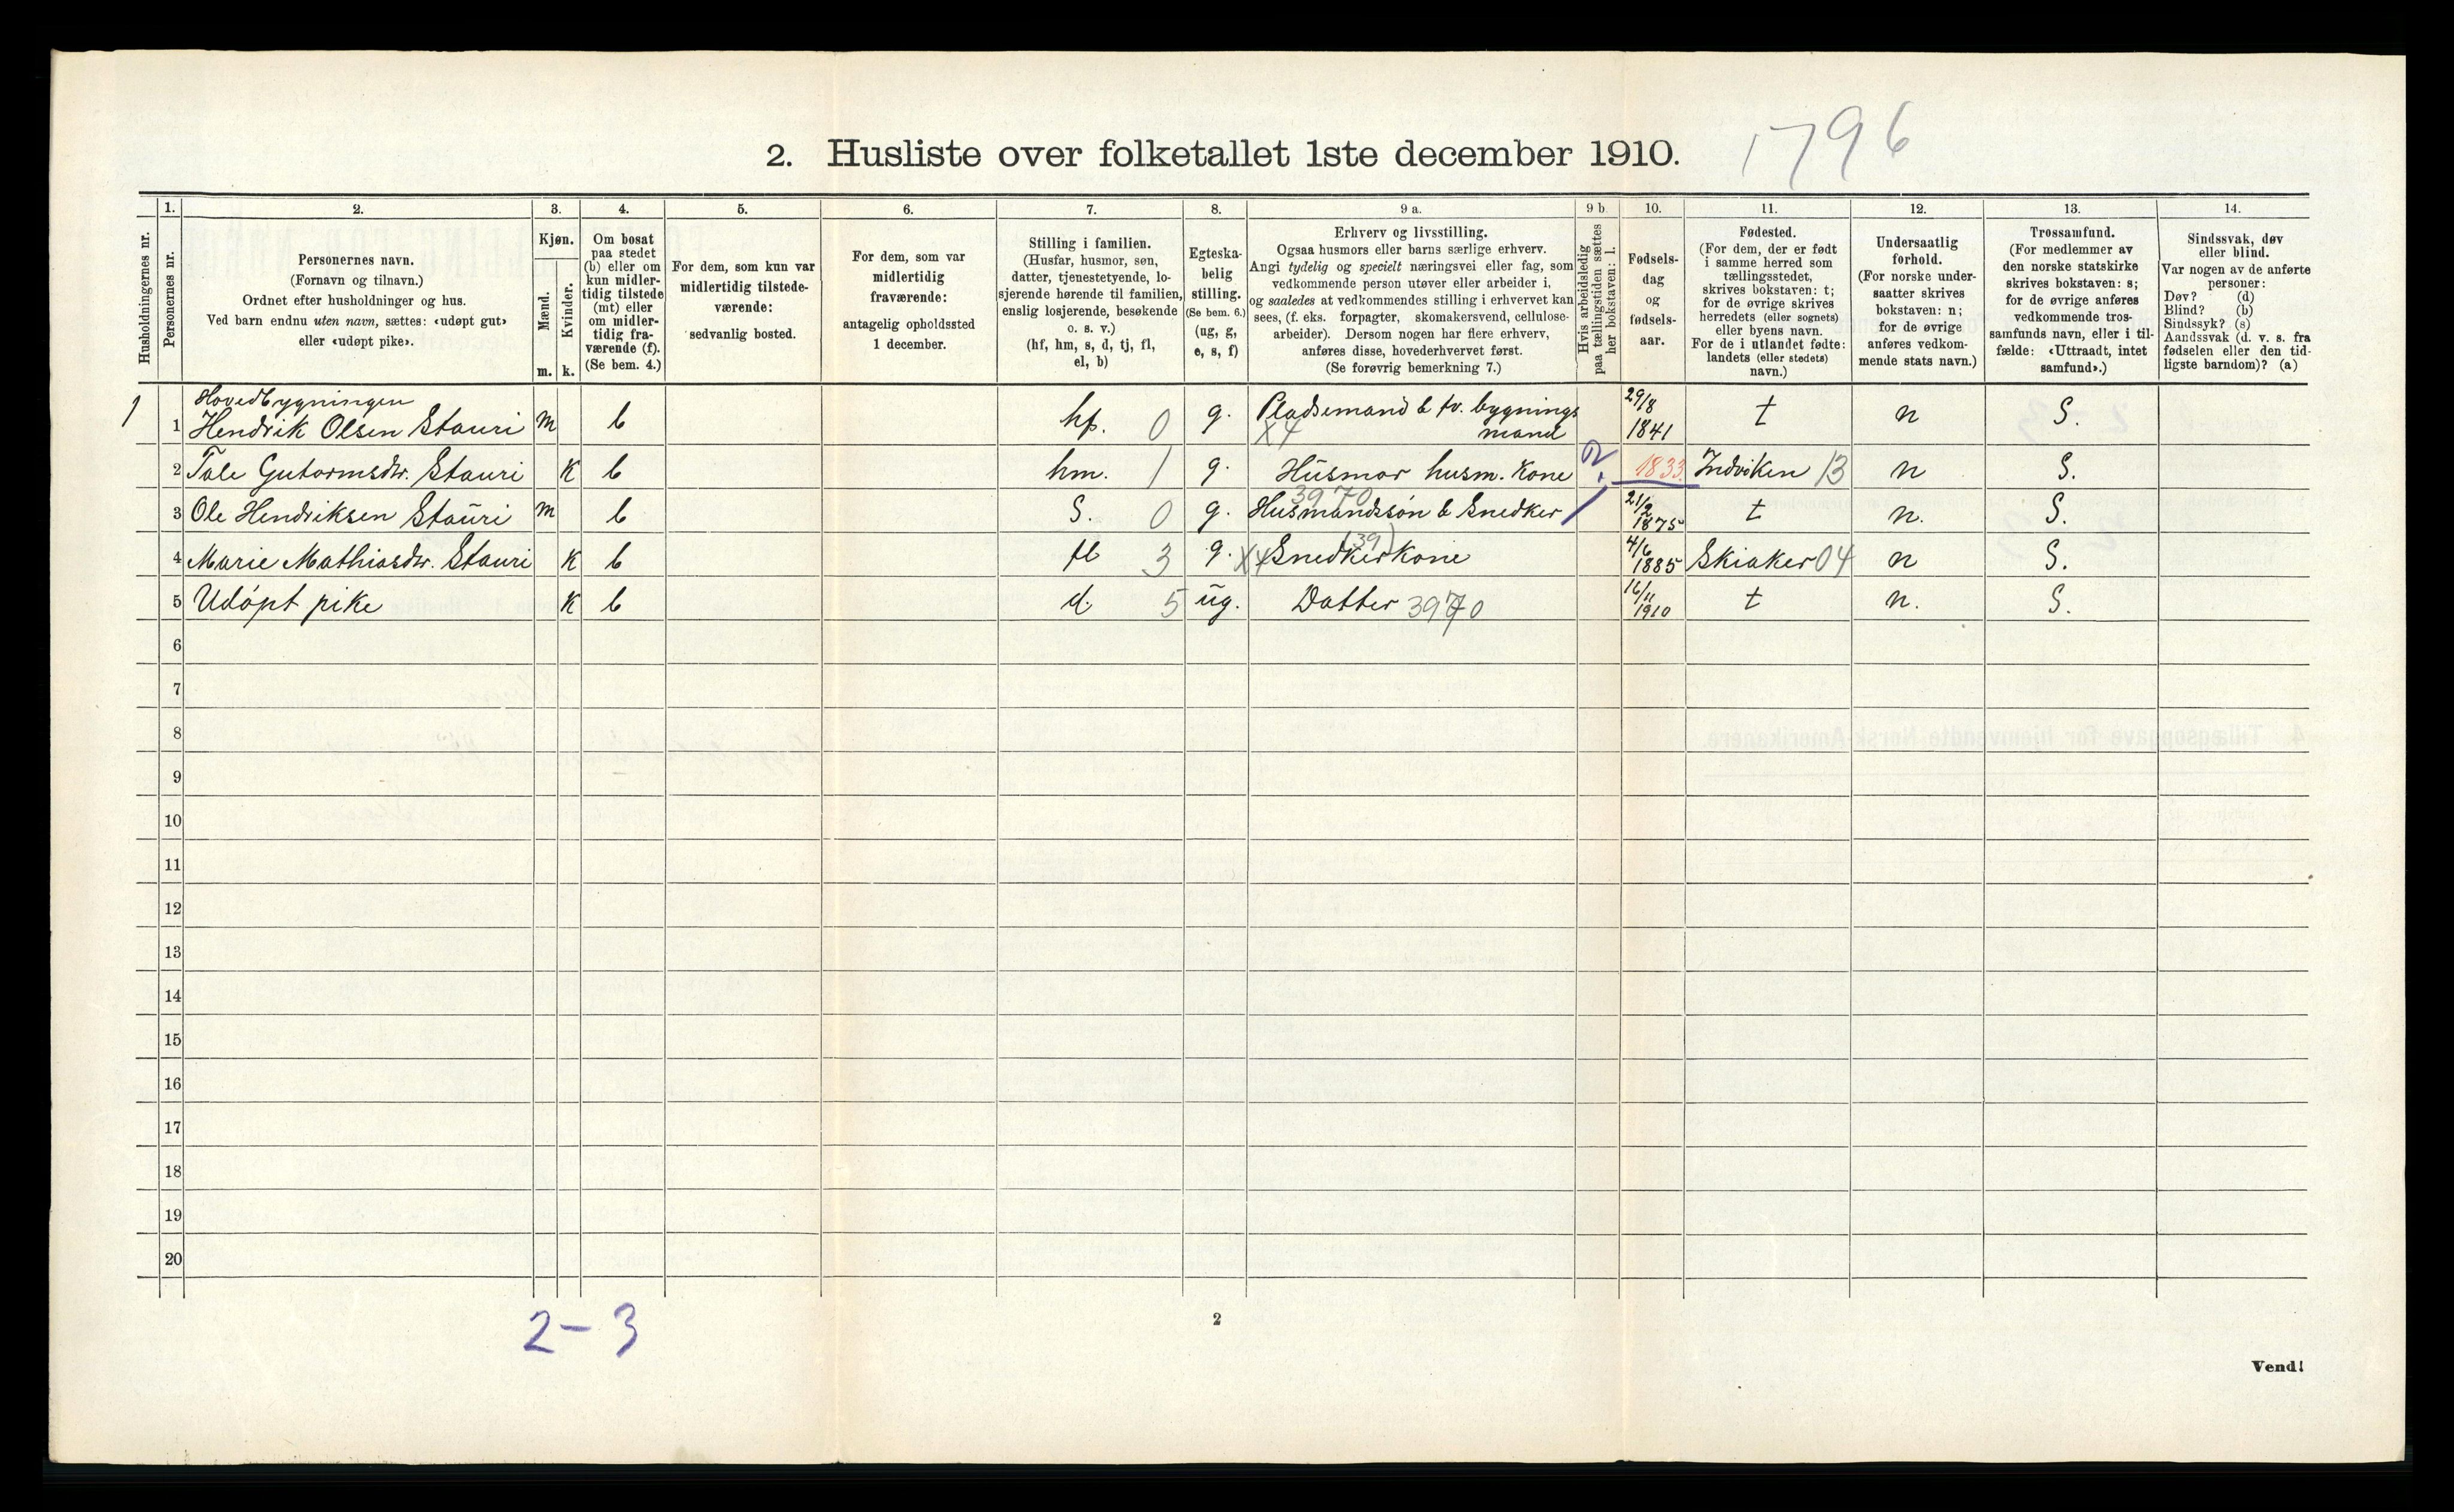 2. Husliste over folketallet 1ste december 1910.
1796
Husholdningernes nr.
1.
Personernes nr.
2.
Personernes navn.
(Fornavn og tilnavn.)
Ordnet efter husholdninger og hus.
Ved barn endnu uten navn, sættes: «udøpt gut»
eller «udøpt pike».
3.
Kjøn.
Mænd.
Kvinder.
m. k.
4.
Om bosat
paa stedet
(b) eller om
kun midler-
tidig tilstede
(mt) eller
om midler-
tidig fra-
værende (f).
(Se bem. 4.)
5.
For dem, som kun var
midlertidig tilstede-
værende:
sedvanlig bosted.
6.
For dem, som var
midlertidig
fraværende:
antagelig opholdssted
1 december.
7.
Stilling i familien.
(Husfar, husmor, søn,
datter, tjenestetyende, lo-
sjerende hørende til familien,
enslig losjerende, besøkende
o. s. v.)
(hf, hm, s, d, tj, fl,
el, b)
8.
Egteska-
belig
stilling.
(Se bem. 6.)
(ug, g,
e, s, f)
9 a.
Erhverv og livsstilling.
Ogsaa husmors eller barns særlige erhverv.
Angi tydelig og specielt næringsvei eller fag, som
vedkommende person utøver eller arbeider i,
og saaledes at vedkommendes stilling i erhvervet kan
sees, (f. eks. forpagter, skomakersvend, cellulose-
arbeider). Dersom nogen har flere erhverv,
anføres disse, hovederhvervet først.
(Se forøvrig bemerkning 7.)
9 b
Hvis arbeidsledig
paa tællingstiden sættes
her bokstaven: l.
10.
Fødsels-
dag
og
fødsels-
aar.
11.
Fødested.
(For dem, der er født
i samme herred som
tællingsstedet,
skrives bokstaven: t;
for de øvrige skrives
herredets (eller sognets)
eller byens navn.
For de i utlandet fødte:
landets (eller stedets)
navn.)
12.
Undersaatlig
forhold.
(For norske under-
saatter skrives
bokstaven: n;
for de øvrige
anføres vedkom-
mende stats navn.)
13.
Trossamfund.
(For medlemmer av
den norske statskirke
skrives bokstaven: s;
for de øvrige anføres
vedkommende tros-
samfunds navn, eller i til-
fælde: «Uttraadt, intet
samfund».)
14.
Sindssvak, døv
eller blind.
Var nogen av de anførte
personer:
Døv? (d)
Blind? (b)
Sindssyk? (s)
Aandssvak (d. v. s. fra
fødselen eller den tid-
ligste barndom)? (a)
Hovedbygningen
1 1 Hendrik Olsen Stauri m b hf. 0 g. Pladsemand & tv. bygnings
mand X4 29/8 1841 t n S.
2 Tale Gutormsdtr. Stauri K b hm. 1 g. Husmor husm. Kone 1833 Indviken 13 n S.
3 Ole Hendriksen Stauri m b S. 0 g. Husmandssøn & Snedker 3970 21/2 1875 t n. S.
4 Marie Mathiasdtr. Stauri K b fl 3 g. X4 Snedkerkone (39) 4/6 1885 Skiaker 04 n S.
5 Udøpt pike K b d. 5 ug. Datter 3970 16/11 1910 t n. S.
6
7
8
9
10
11
12
13
14
15
16
17
18
19
20
2-3
2
Vend!